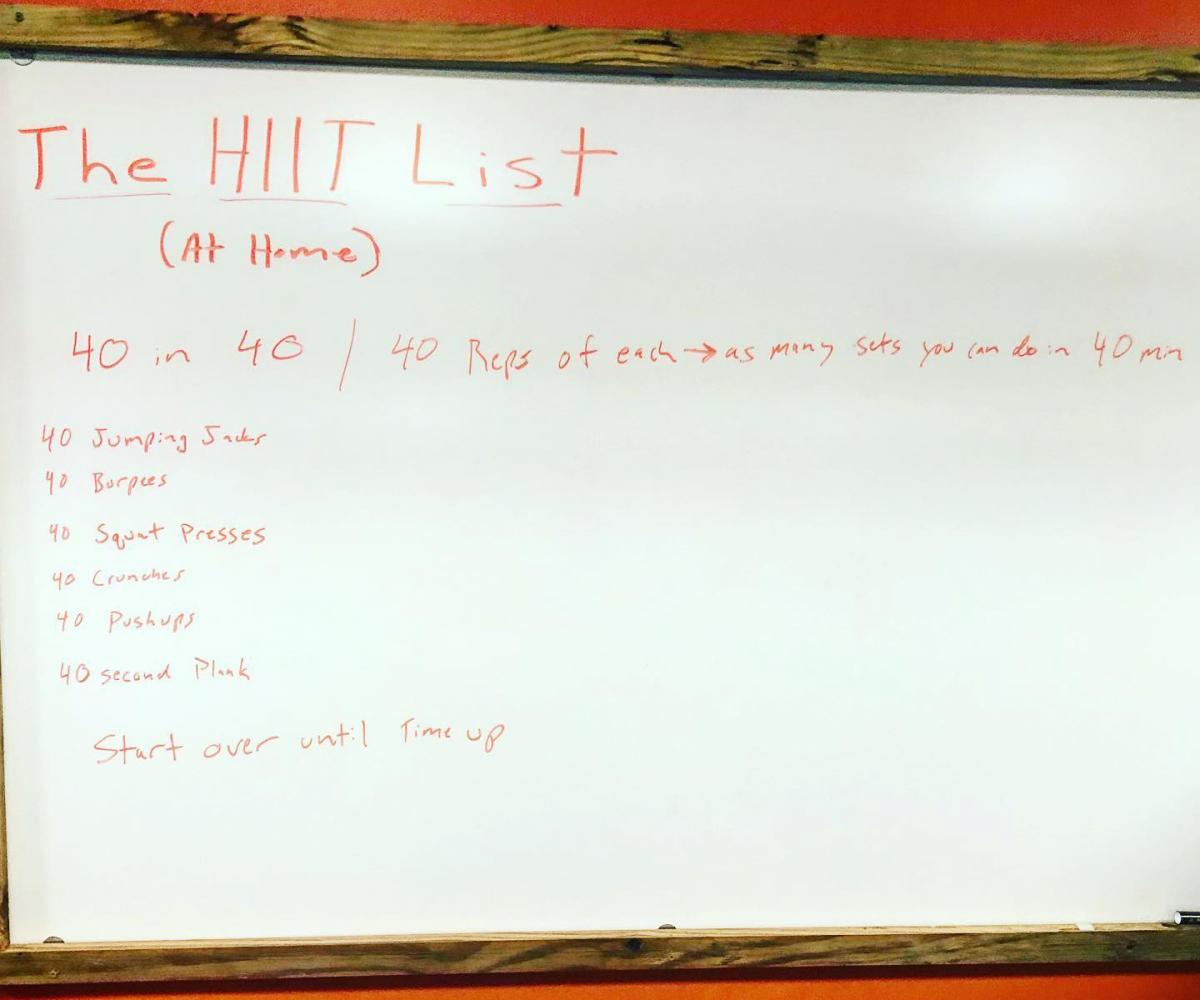 The HIIT List
(At Home)
40 in 40 / 40 Reps of each → as many sets you can do in 40 min
40 Jumping Jacks
40 Burpees
40 Squat Presses
40 Crunches
40 Pushups
40 second Plank
Start over until Time up